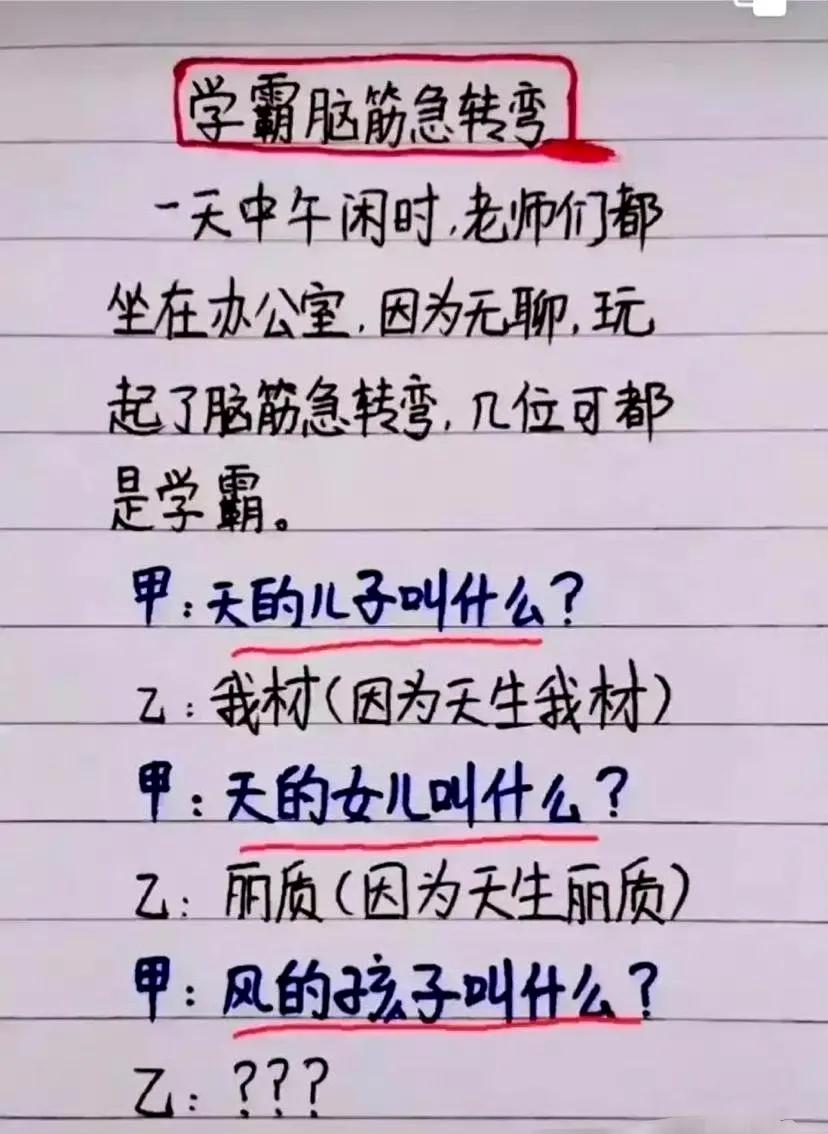 学霸脑筋急转弯
一天中午闲时,老师们都
坐在办公室,因为无聊,玩
起了脑筋急转弯,几位可都
是学霸。
甲:天的儿子叫什么?
乙:我材(因为天生我材)
甲:天的女儿叫什么?
乙:丽质(因为天生丽质)
甲:风的孩子叫什么?
乙:???